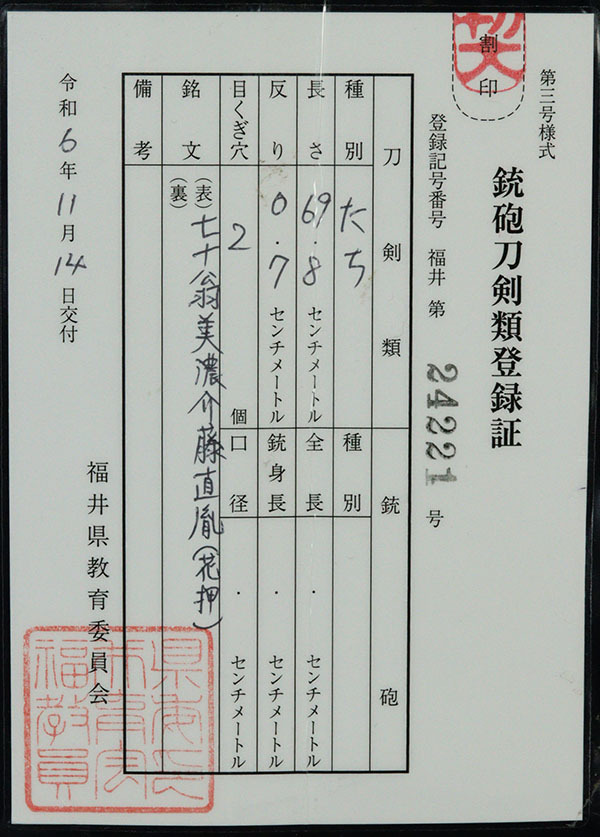 第三号様式
銃砲刀剣類登録証
割印
登録記号番号 福井 第 24221 号
刀剣類
種別 たち
長さ 69.8 センチメートル
反り 0.7 センチメートル
目くぎ穴 2 個
銘文 (表) 七十翁美濃介藤直胤(花押)
(裏)
備考
銃砲
種別
全長 ・ センチメートル
銃身長 ・ センチメートル
口径 ・ センチメートル
令和6年11月14日交付
福井県教育委員会